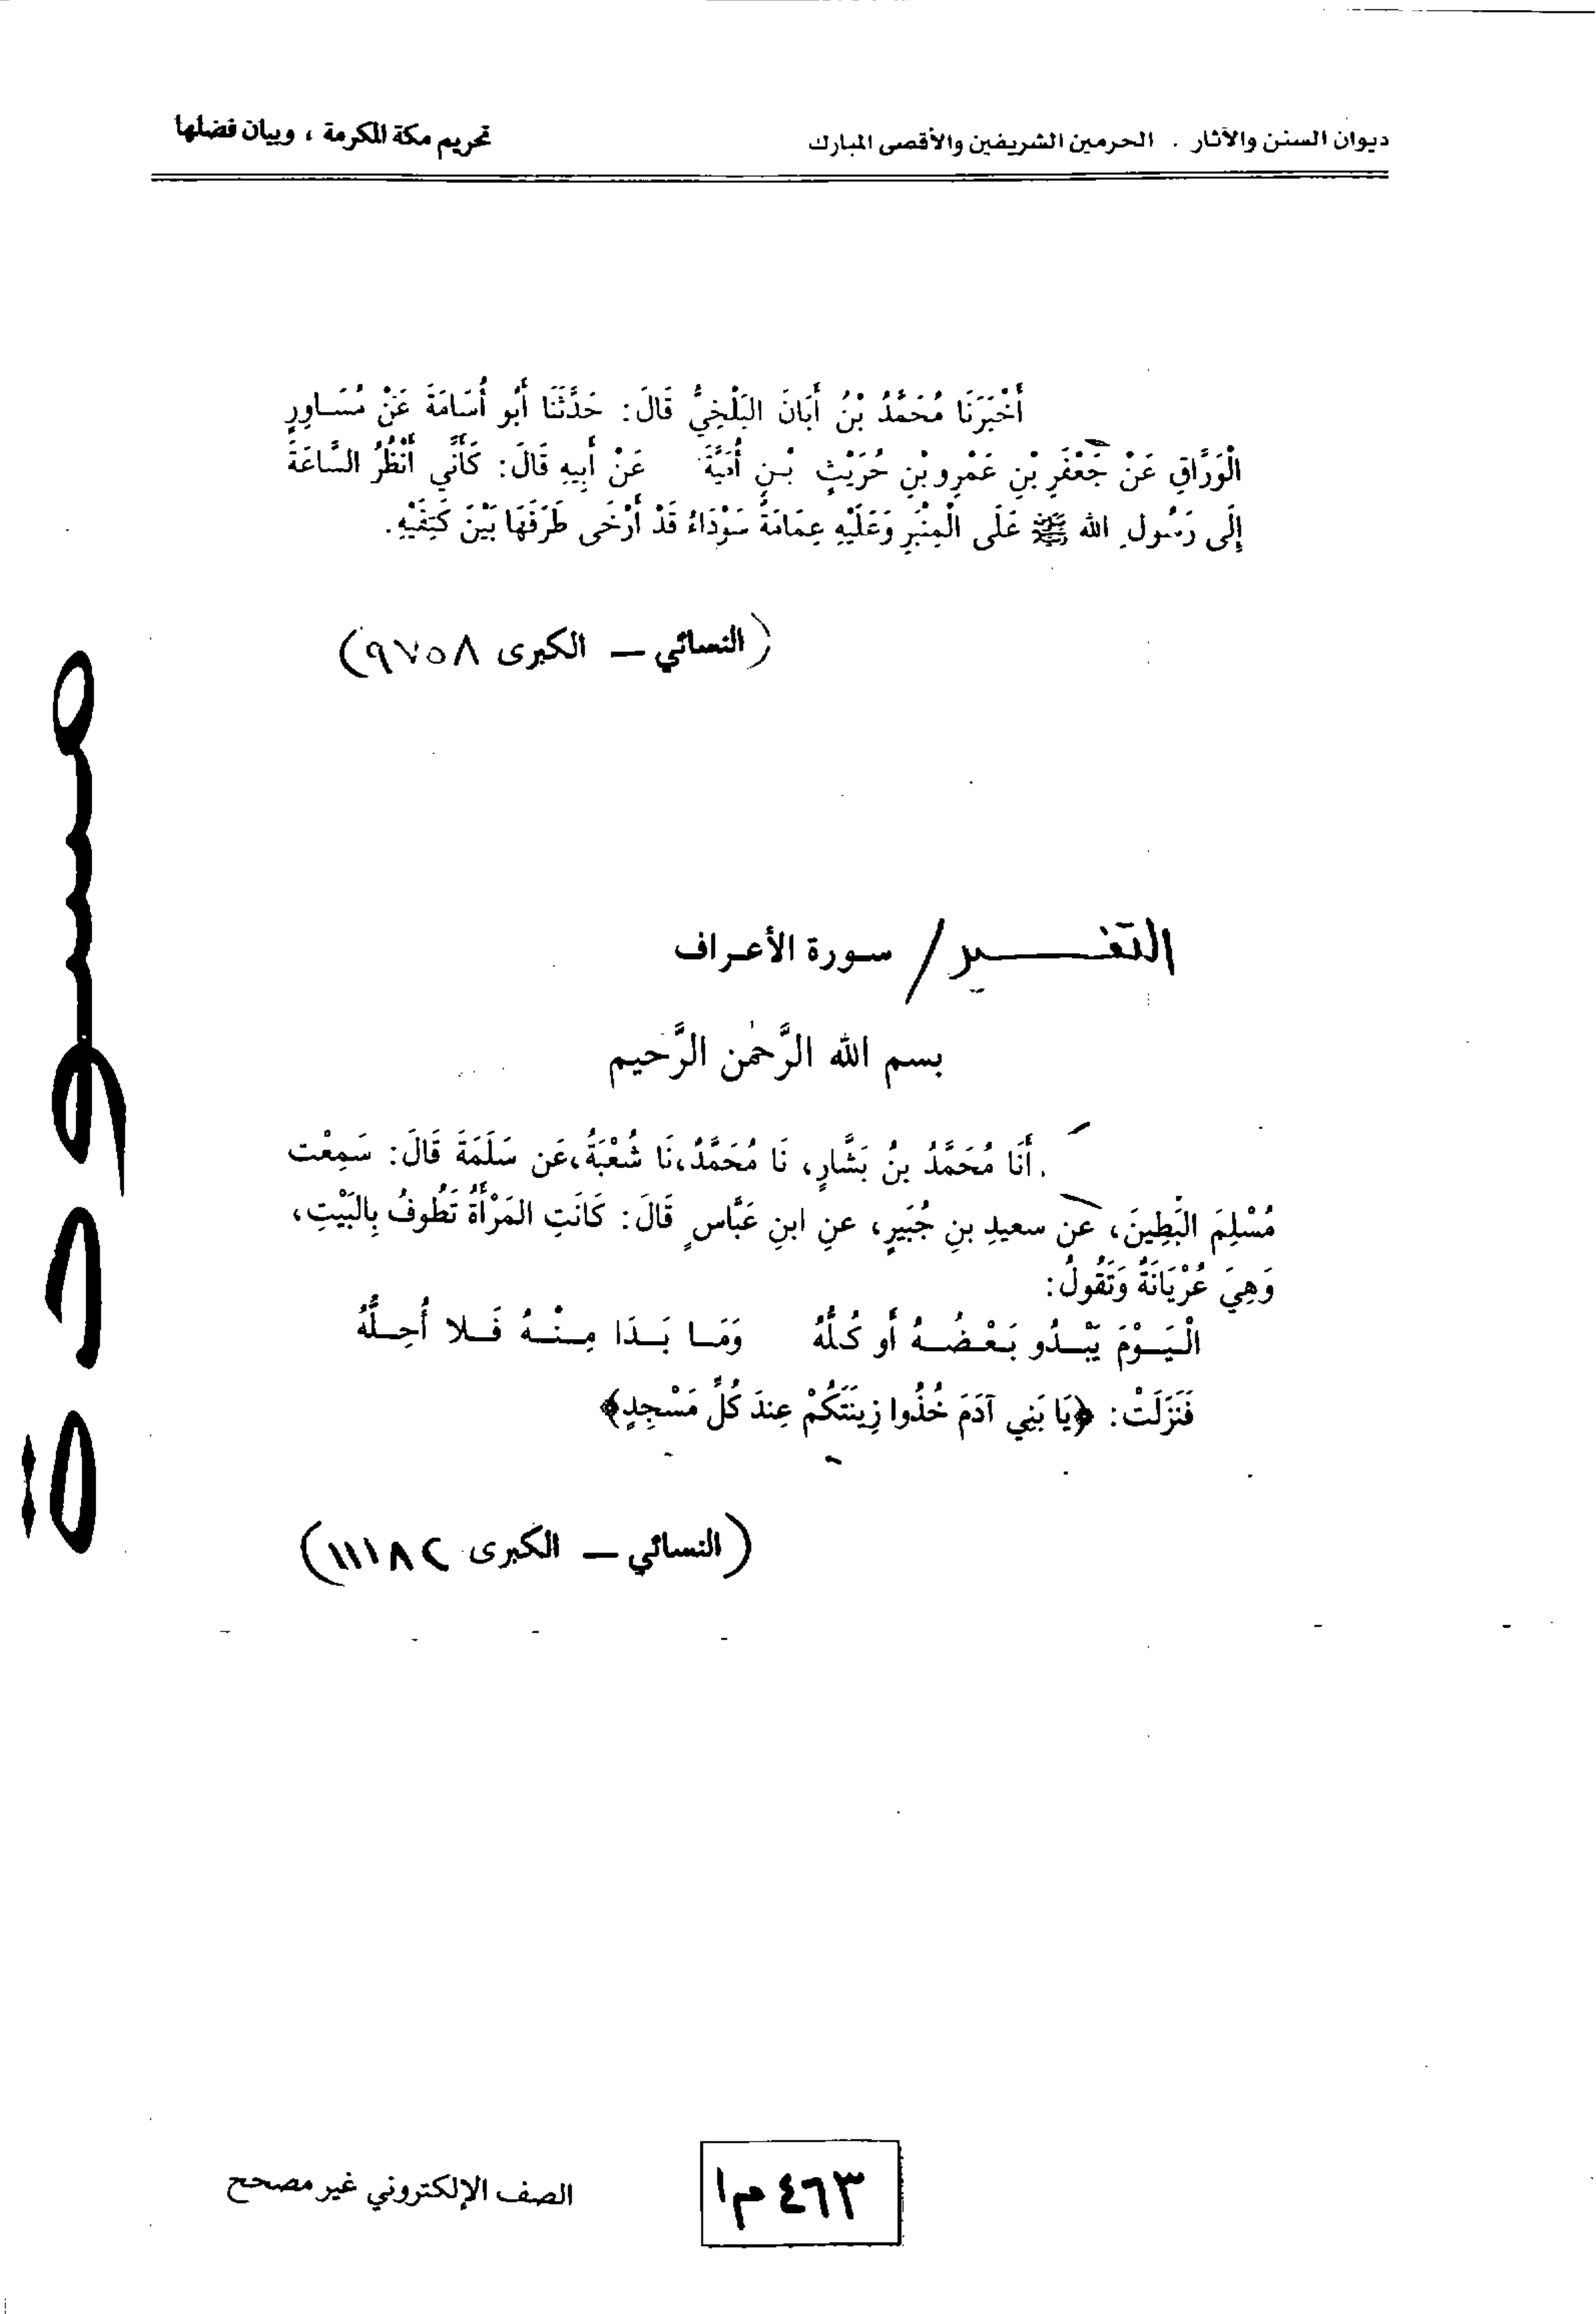 ديوان السنن والآثار . الحرمين الشريفين والأقصى المبارك
تحريم مكة المكرمة ، وبيان فضلها
أَخْبَرَنَا مُحَمَّدُ بْنُ أَبَانَ البَلْخِيُّ قَالَ: حَدَّثَنَا أَبُو أُسَامَةَ عَنْ مُسَاوِرٍ
الْوَرَّاقِ عَنْ جَعْفَرِ بْنِ عَمْرِو بْنِ حُرَيْثِ بْنِ أُمَيَّةَ عَنْ أَبِيهِ قَالَ: كَأَنِّي أَنْظُرُ السَّاعَةَ
إِلَى رَسُولِ الله ﷺ عَلَى الْمِنْبَرِ وَعَلَيْهِ عِمَامَةٌ سَوْدَاءُ قَدْ أَرْخَى طَرَفَهَا بَيْنَ كَتِفَيْهِ.
(النسائي – الكبرى ٩٧٥٨)
التفسير / سورة الأعراف
بسم الله الرَّحمٰن الرَّحيم
. أَنَا مُحَمَّدُ بنُ بَشَّارٍ، نَا مُحَمَّدٌ، نَا شُعْبَةُ، عَن سَلَمَةَ قَالَ: سَمِعْت
مُسْلِمَ البَطِينَ، عَن سعيدِ بنِ جُبَيرٍ، عنِ ابنِ عَبَّاسٍ قَالَ: كَانَتِ المَرْأَةُ تَطُوفُ بِالبَيْتِ،
وَهِيَ عُرْيَانَةٌ وَتَقُولُ:
الْيَوْمَ يَبْدُو بَعْضُهُ أَو كُلُّهُ وَمَا بَدَا مِنْهُ فَلا أُحِلُّهُ
فَنَزَلَتْ: ﴿يَا بَنِي آدَمَ خُذُوا زِينَتَكُمْ عِندَ كُلِّ مَسْجِدٍ﴾
(النسائي – الكبرى ١١١٨٢)
مسودة
٤٦٣ م ١
الصف الإلكتروني غير مصحح